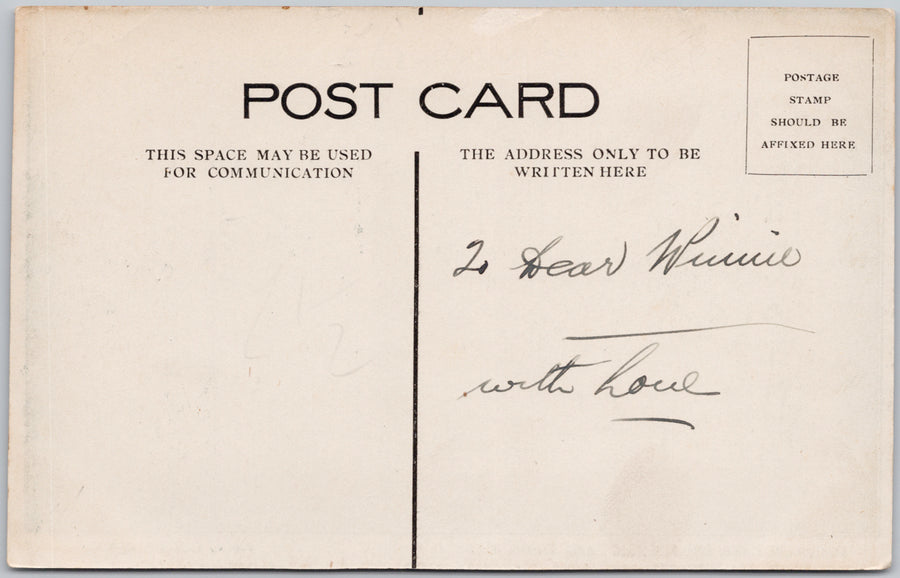 POST CARD
THIS SPACE MAY BE USED
FOR COMMUNICATION
THE ADDRESS ONLY TO BE
WRITTEN HERE
POSTAGE
STAMP
SHOULD BE
AFFIXED HERE
To Dear Winnie
with Love